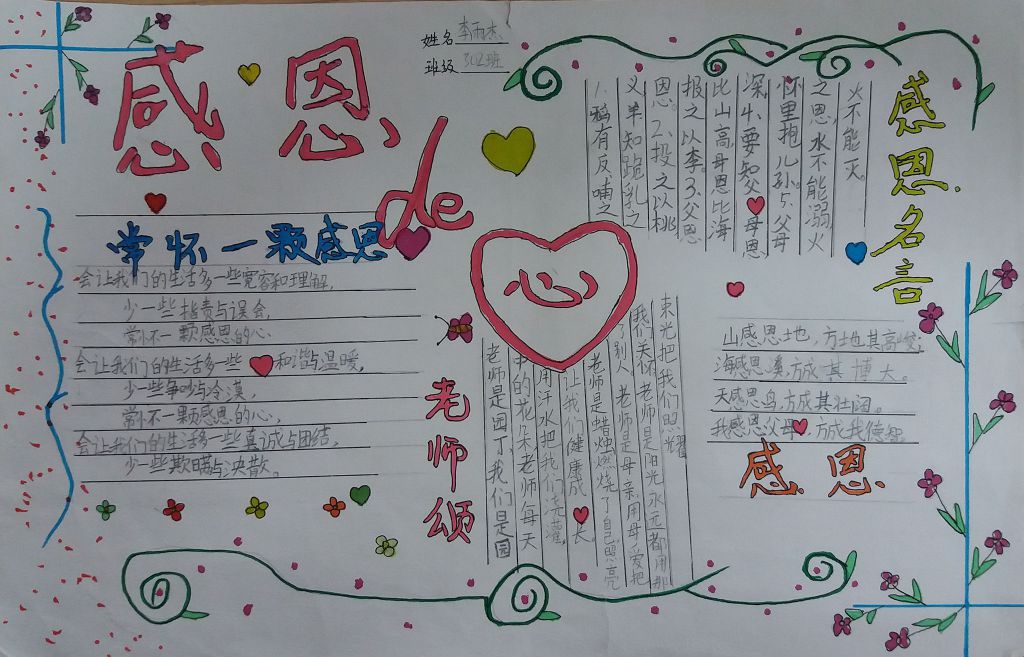 姓名 李雨杰
班级 302班
感恩
de
心
常怀一颗感恩
会让我们的生活多一些宽容和理解,
少一些指责与误会,
常怀一颗感恩的心.
会让我们的生活多一些和谐与温暖,
少一些争吵与冷漠,
常怀一颗感恩的心,
会让我们的生活多一些真诚与团结,
少一些欺瞒与涣散。
感恩名言
1.鸦有反哺之
义羊知跪乳之
恩。2.投之以桃
报之以李。3.父恩
比山高,母恩比海
深4.要知父母恩
怀里抱儿孙。5.父母
之恩,水不能溺,火
火不能灭。
老师颂
老师是园丁,我们是园
中的花朵老师每天
用汗水把我们浇灌,
让我们健康成长。
老师是蜡烛燃烧了自己照亮
了别人 老师是母亲用母爱把
我们关怀 老师是阳光永远都用那
束光把我们照耀
山感恩地,方成其高峻;
海感恩溪,方成其博大。
天感恩鸟,方成其壮阔。
我感恩父母,方成我德智.
感恩